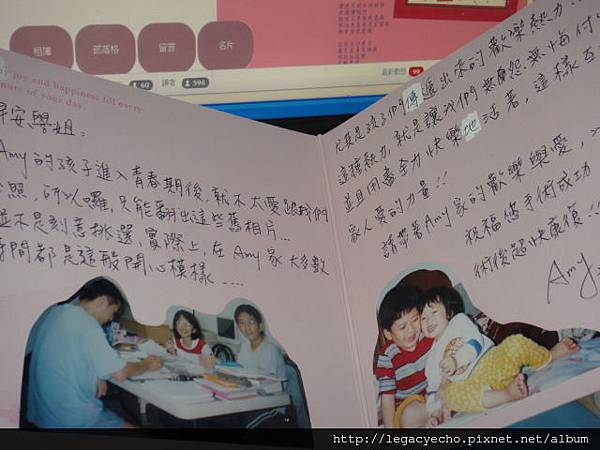 相簿
部落格
留言
名片
60
讀者 596
最新動態 99
joy and happiness fill every
of your day.
早安學姐：
Amy的孩子進入青春期後，就不太愛跟我們
照，所以囉，只能翻出這些舊相片...
並不是刻意挑選，實際上，在Amy家大多數
時間都是這般開心模樣....
尤其是孩子們傳遞出來的歡樂熱力...
這種熱力，就是讓我們無怨無悔付
並且用盡全力快樂地活著，這樣
家人愛的力量!!
請帶著Amy家的歡樂與愛，
祝福您手術成功
術後超快康復!!
Amy
http://legacyecho.pixnet.net/album